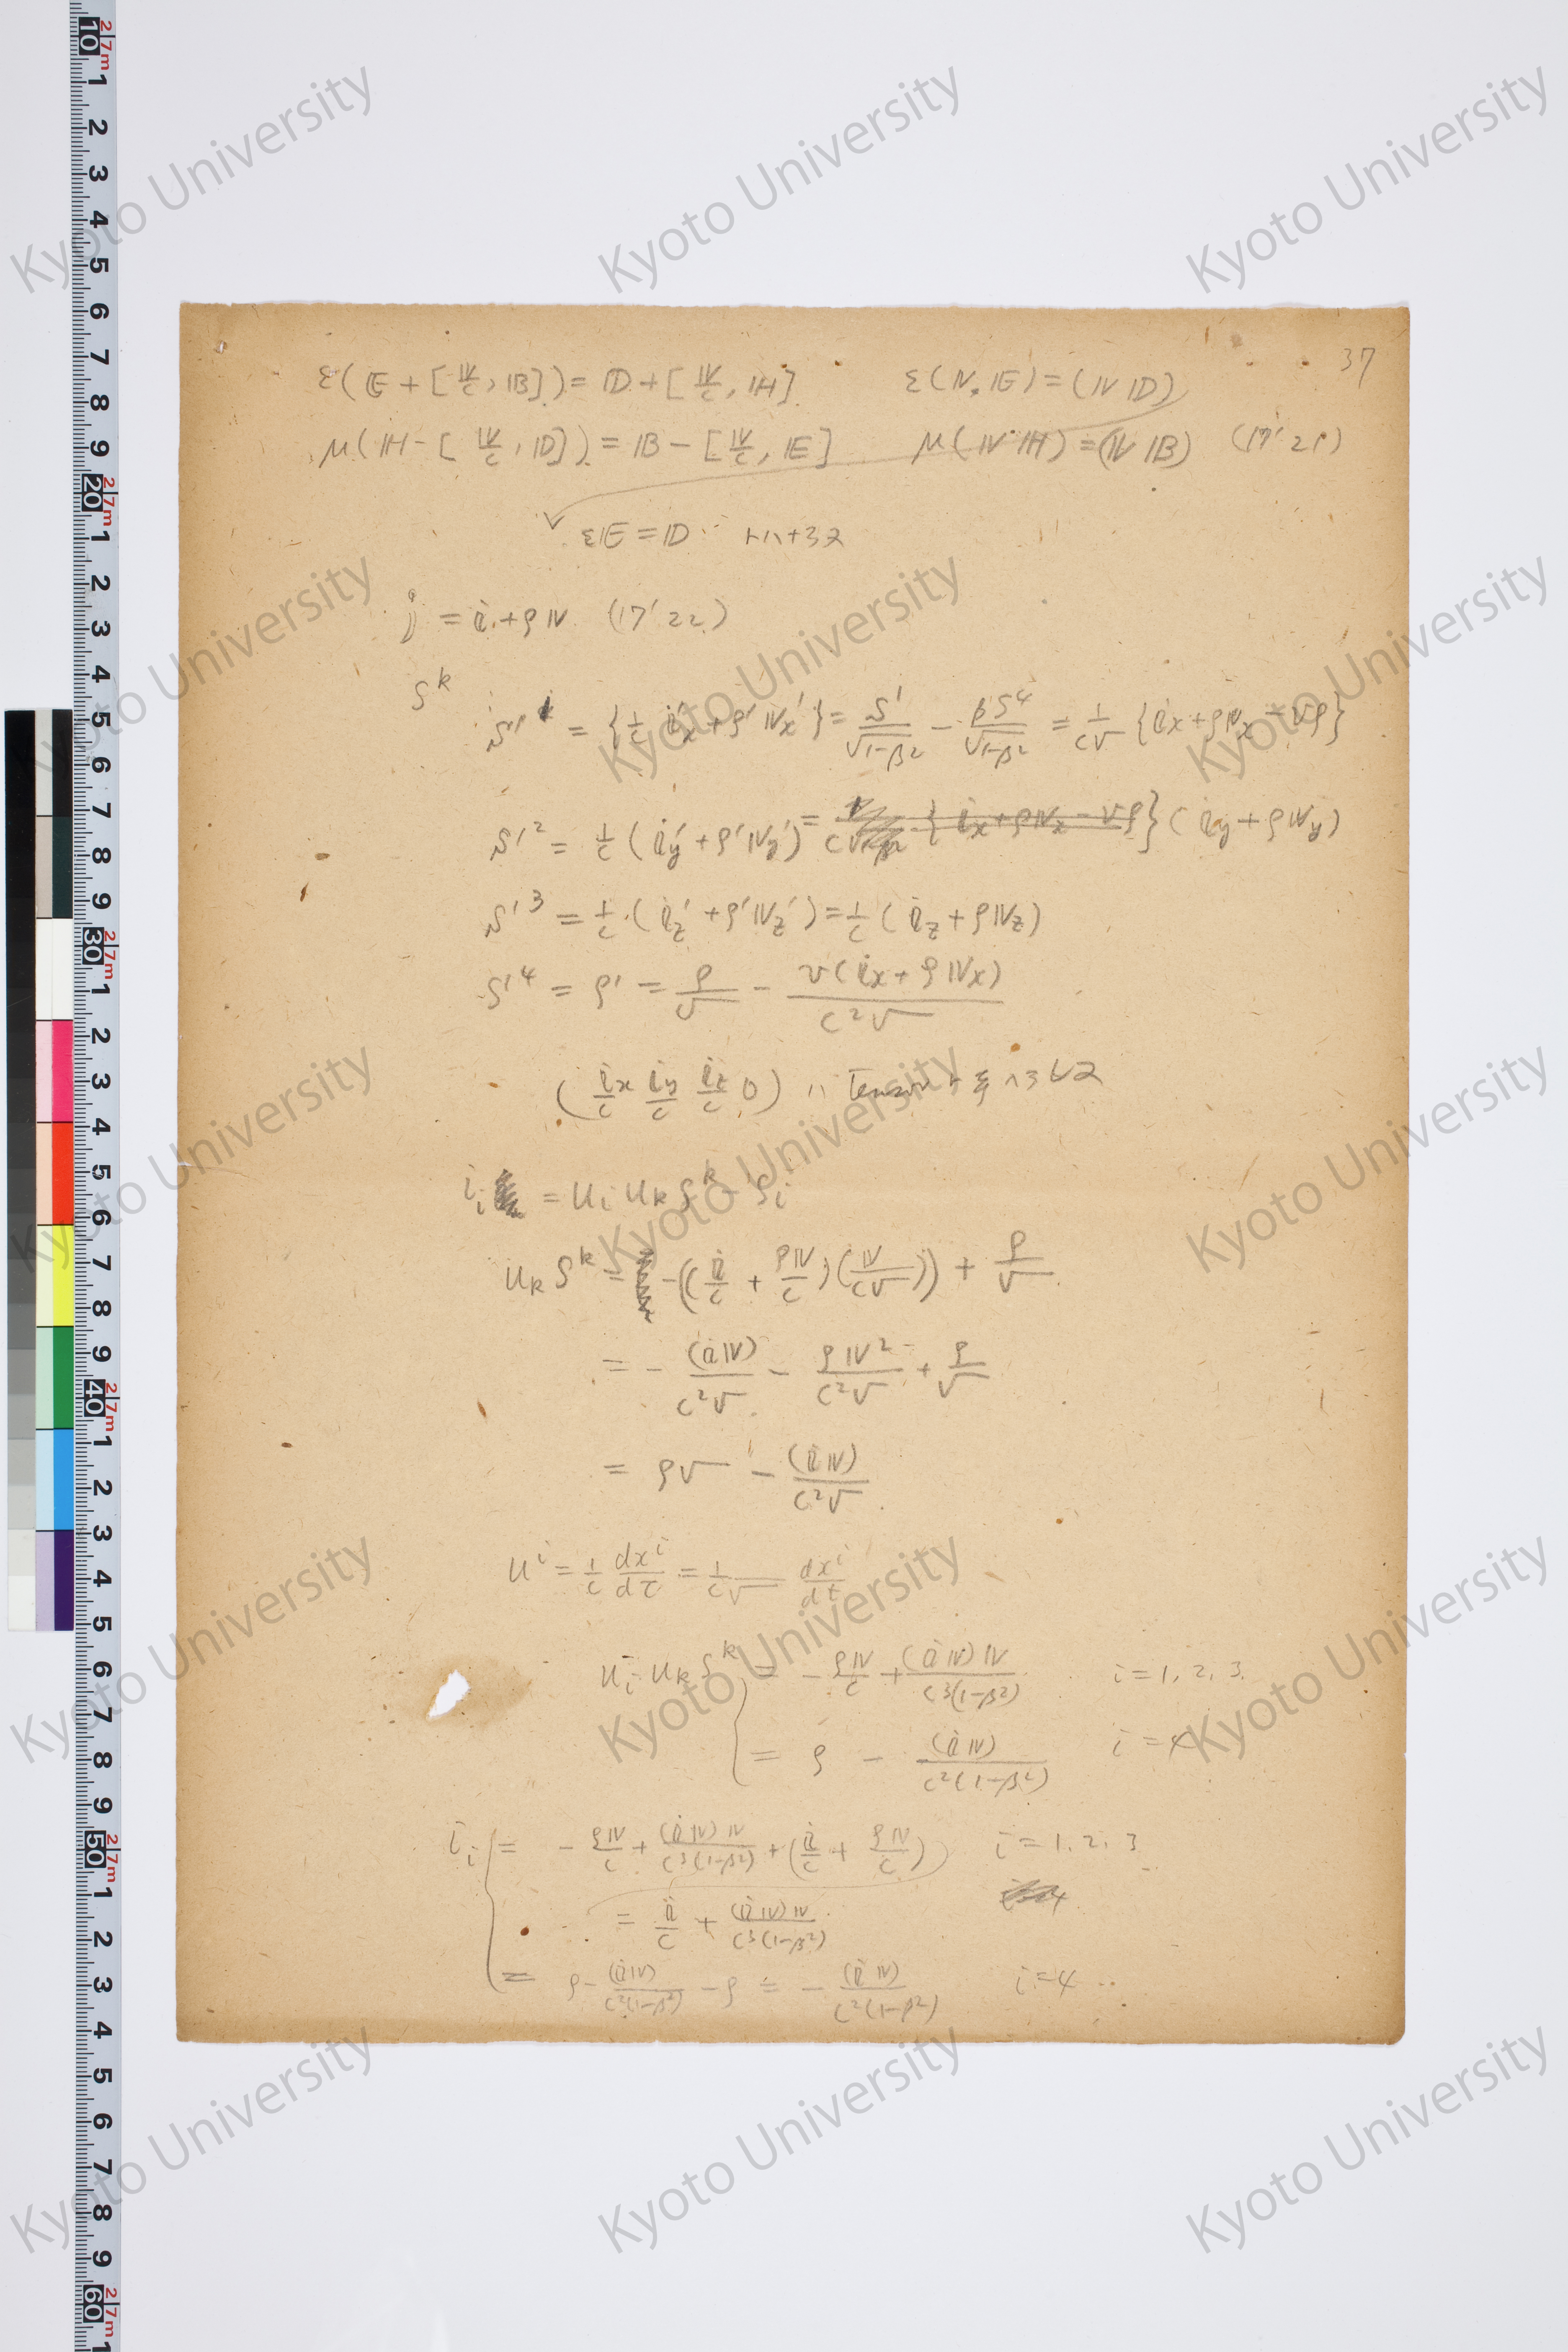 37
ε(𝔼 + [𝕍/c, 𝔹]) = 𝔻 + [𝕍/c, ℍ]    ε(𝕍, 𝔼) = (𝕍 𝔻)
μ(ℍ - [𝕍/c, 𝔻]) = 𝔹 - [𝕍/c, 𝔼]    μ(𝕍 ℍ) = (𝕍 𝔹)    (17' 21)
ε𝔼 = 𝔻
j = 𝕚 + ρ𝕍    (17' 22)
S^k
S'^1 = {1/c 𝕚'x + ρ' 𝕍x'} = S^1/√(1-β²) - βS^4/√(1-β²) = 1/(c√) {𝕚x + ρ𝕍x - vρ}
S'^2 = 1/c (𝕚y' + ρ'𝕍y') = {𝕚x + ρ𝕍x - vρ} (𝕚y + ρ𝕍y)
S'^3 = 1/c (𝕚z' + ρ'𝕍z') = 1/c (𝕚z + ρ𝕍z)
S'^4 = ρ' = ρ/√ - v(𝕚x + ρ𝕍x)/(c²√)
(𝕚x/c 𝕚y/c 𝕚z/c 0) ハ Tensor
i_i = u_i u_k S^k - S_i
u_k S^k = -((𝕚/c + ρ𝕍/c)(𝕍/(c√))) + ρ/√
= - (𝕚𝕍)/(c²√) - ρ𝕍²/(c²√) + ρ/√
= ρ√ - (𝕚𝕍)/(c²√)
u^i = 1/c dx^i/dτ = 1/(c√) dx^i/dt
u_i u_k S^k = - ρ𝕍/c + (𝕚𝕍)𝕍/(c³(1-β²))    i = 1, 2, 3.
= ρ - (𝕚𝕍)/(c²(1-β²))    i = 4
i_i = - ρ𝕍/c + (𝕚𝕍)𝕍/(c³(1-β²)) + (𝕚/c + ρ𝕍/c)    i = 1, 2, 3
= 𝕚/c + (𝕚𝕍)𝕍/(c³(1-β²))
= ρ - (𝕚𝕍)/(c²(1-β²)) - ρ = - (𝕚𝕍)/(c²(1-β²))    i = 4